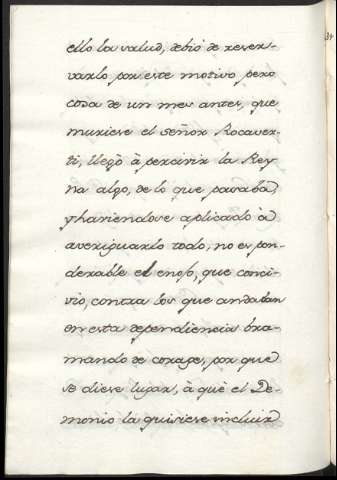 ello la valud, debiò de reser-
varlo por este motivo pero
cosa de un mes antes, que
muriese el señor Rocaver-
ti, llegò à percivir la Rey
na algo, de lo que pasaba,
y haviendose aplicado à
averiguarlo todo, no es pon-
derable el enojo, que conci-
vio, contra los que andaban
en esta dependiencia bra-
mando de corage, por que
se diese lugar, à què el De-
monio la quisiese incluir